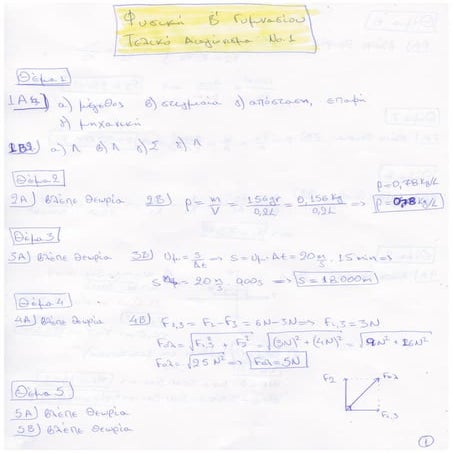 Φυσική Β' Γυμνασίου
Τελικό Διαγώνισμα No.1
Θέμα 1
1Α) α) μέγεθος β) στιγμιαία γ) απόσταση, επαφή
δ) μηχανική
1Β) α) Λ β) Λ γ) Σ δ) Λ
Θέμα 2
2Α) βλέπε θεωρία 2Β) ρ = m/V = 156gr/0,2L = 0,156Kg/0,2L ⟹ ρ=0,78Kg/L
ρ=0,78Kg/L
Θέμα 3
3Α) βλέπε θεωρία 3Β) Uμ = s/Δt ⟹ s = Uμ · Δt = 20 m/s · 15min ⟹
s = 20 m/s · 900s ⟹ s = 18.000m
Θέμα 4
4Α) βλέπε θεωρία 4Β) F1,3 = F1 - F3 = 6N - 3N ⟹ F1,3 = 3N
Fολ = √F1,3² + F2² = √(3N)² + (4N)² = √9N² + 16N²
Fολ = √25N² ⟹ Fολ = 5N
F2 Fολ
F1,3
Θέμα 5
5Α) βλέπε θεωρία
5Β) βλέπε θεωρία
1